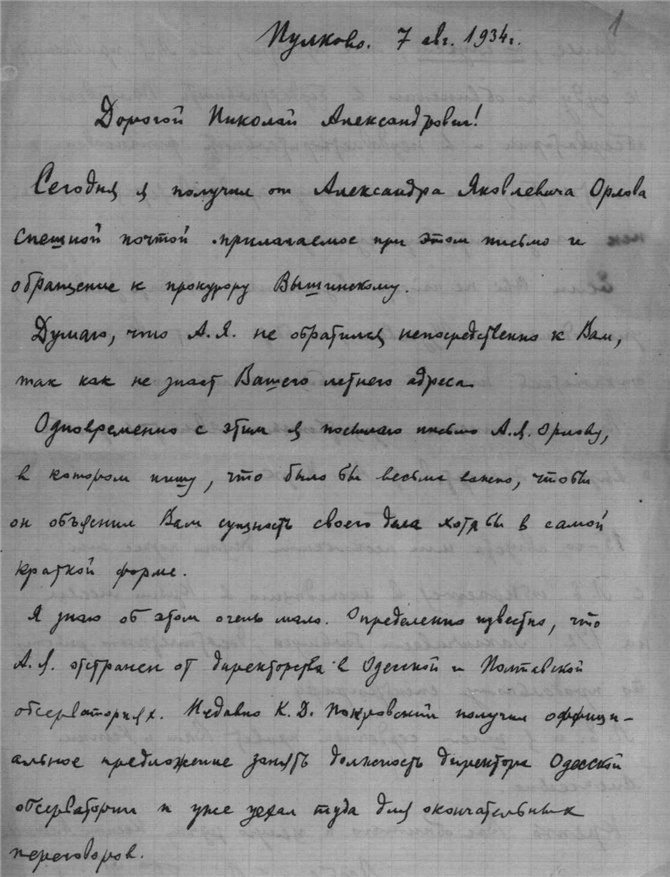 1
Пулково. 7 авг. 1934г.
Дорогой Николай Александрович!
Сегодня я получил от Александра Яковлевича Орлова
спешной почтой прилагаемое при этом письмо и
обращение к прокурору Вышинскому.
Думаю, что А.Я. не обратился непосредственно к Вам,
так как не знает Вашего летнего адреса.
Одновременно с этим я посылаю письмо А.Я. Орлову,
в котором пишу, что было бы весьма важно, чтобы
он объяснил Вам сущность своего дела хотя бы в самой
краткой форме.
Я знаю об этом очень мало. Определенно известно, что
А.Я. отстранен от директорства в Одесской и Полтавской
обсерваториях. Недавно К.Д. Покровский получил оффици-
альное предложение занять должность директора Одесской
обсерватории и уже уехал туда для окончательных
переговоров.